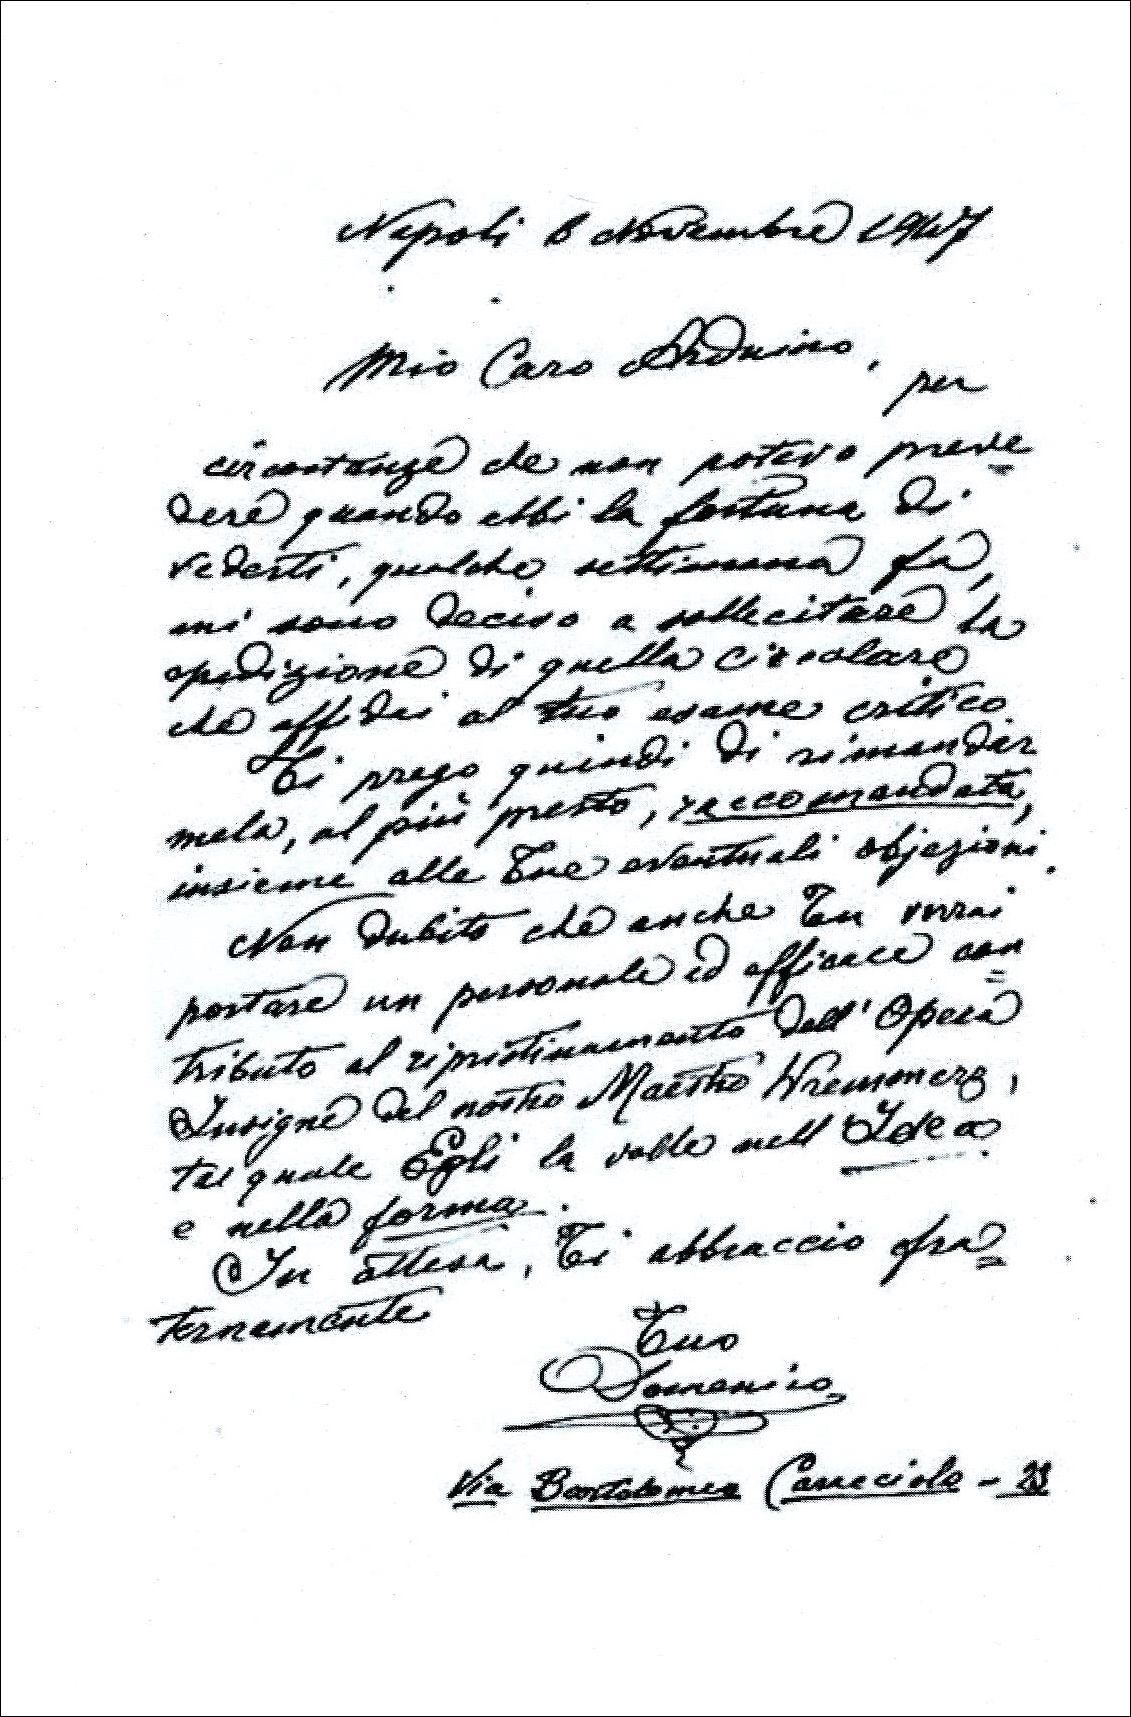 Napoli 8 Novembre 1947
Mio Caro Arduino,
per
circostanze che non potevo preve=
dere quando ebbi la fortuna di
vederti, qualche settimana fa,
mi sono deciso a sollecitare la
spedizione di quella circolare
che affidai al tuo esame critico
Ti prego quindi di rimandar
mela, al più presto, raccomandata,
insieme alle Tue eventuali objezioni.
Non dubito che anche Tu vorrai
portare un personale ed efficace con=
tributo al ripristinamento dell'Opera
Insigne del nostro Maestro Kremmerz,
tal quale Egli la volle nell'Idea
e nella forma.
In attesa, Ti abbraccio fra=
ternamente
Tuo
Domenico
Via Bartolomeo Caracciolo -